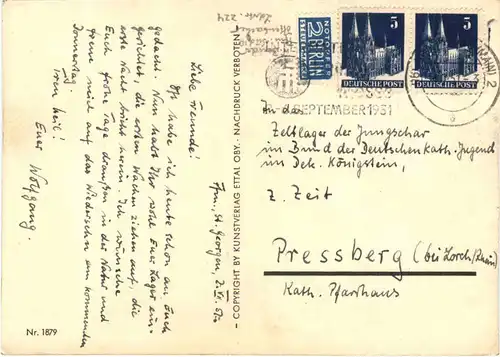 Nr. 1879
Ifm., St. Georgen, 2. VII. 50.
Liebe Freunde!
Oft habe ich heute schon an Euch
gedacht. Nun habt Ihr wohl Euer Lager ein-
gerichtet, die ersten Wachen ziehen auf, die
erste Nacht bricht herein. Ich wünsche
Euch frohe Tage draußen in der Natur und
freue mich auf das Wiedersehn am kommenden
Donnerstag
Treu Heil!
Euer Wolfgang.
—COPYRIGHT BY KUNSTVERLAG ETTAL OBY. - NACHDRUCK VERBOTEN—
NOTOPFER
2 BERLIN
STEUERMARKE
5
DEUTSCHE POST
5
DEUTSCHE POST
SEPTEMBER 1951
An das
Zeltlager der Jungschar
im Bund der Deutschen Kath. Jugend
im Dek. Königstein,
z. Zeit
Pressberg (bei Lorch/Rhein)
Kath. Pfarrhaus